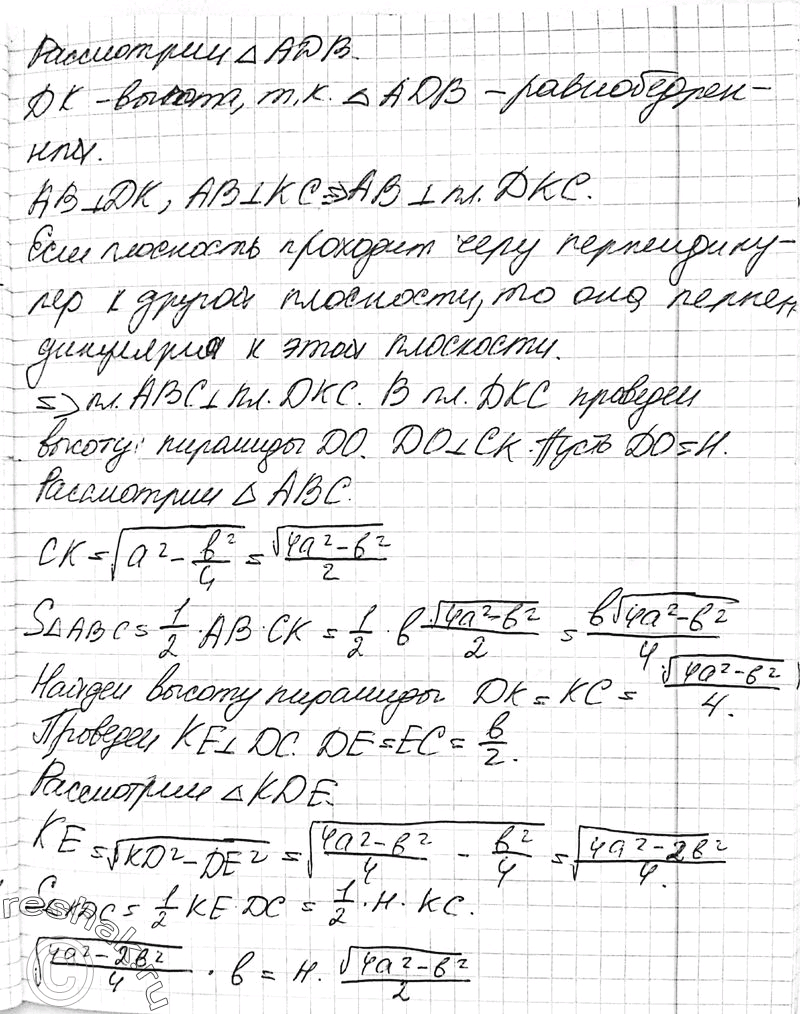 Рассмотрим △ADB.
DK – высота, т.к. △ADB – равнобедрен-
ный.
AB⊥DK, AB⊥KC ⇒ AB ⊥ пл. DKC.
Если плоскость проходит через перпендику-
ляр к другой плоскости, то она перпен
дикулярна к этой плоскости.
⇒ пл. ABC ⊥ пл. DKC. В пл. DKC проведем
высоту пирамиды DO. DO⊥CK. Пусть DO=H.
Рассмотрим △ABC.
CK = √(a² - b²/4) = √(4a²-b²)/2
S△ABC = 1/2 · AB · CK = 1/2 · b √(4a²-b²)/2 = b√(4a²-b²)/4
Найдем высоту пирамиды DK = KC = √(4a²-b²)/4.
Проведем KE⊥DC. DE=EC= b/2.
Рассмотрим △KDE.
KE = √(KD²-DE²) = √((4a²-b²)/4 - b²/4) = √((4a²-2b²)/4).
SKDC = 1/2 KE·DC = 1/2 · H · KC.
√((4a²-2b²)/4) · b = H · √(4a²-b²)/2
reshak.ru
©